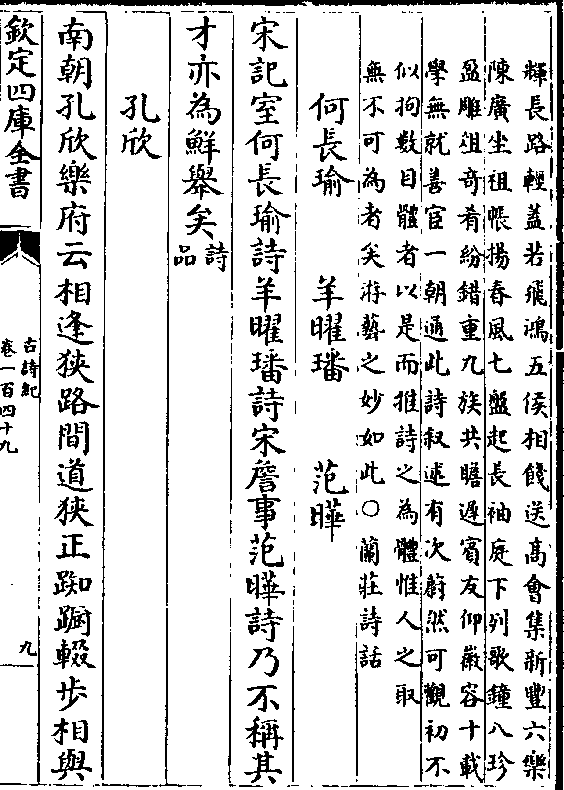 輝長路輕蓋若飛鴻五侯相餞送高會集新豐六樂
陳廣坐祖帳揚春風七盤起長袖庭下列歌鐘八珍
盈雕俎竒肴紛錯重九族共瞻遲賓友仰徽容十載
學無就善宦一朝通此詩叙述有次蔚然可觀初不
似拘數目體者以是而推詩之為體惟人之取
無不可為者矣游藝之妙如此○蘭莊詩話
何長瑜　羊曜璠　范曄
宋記室何長瑜詩羊曜璠詩宋詹事范曄詩乃不稱其
才亦為鮮舉矣詩品
孔欣
南朝孔欣樂府云相逢狹路間道狹正踟躕輟步相與
欽定四庫全書
古詩紀
卷一百四十九
九